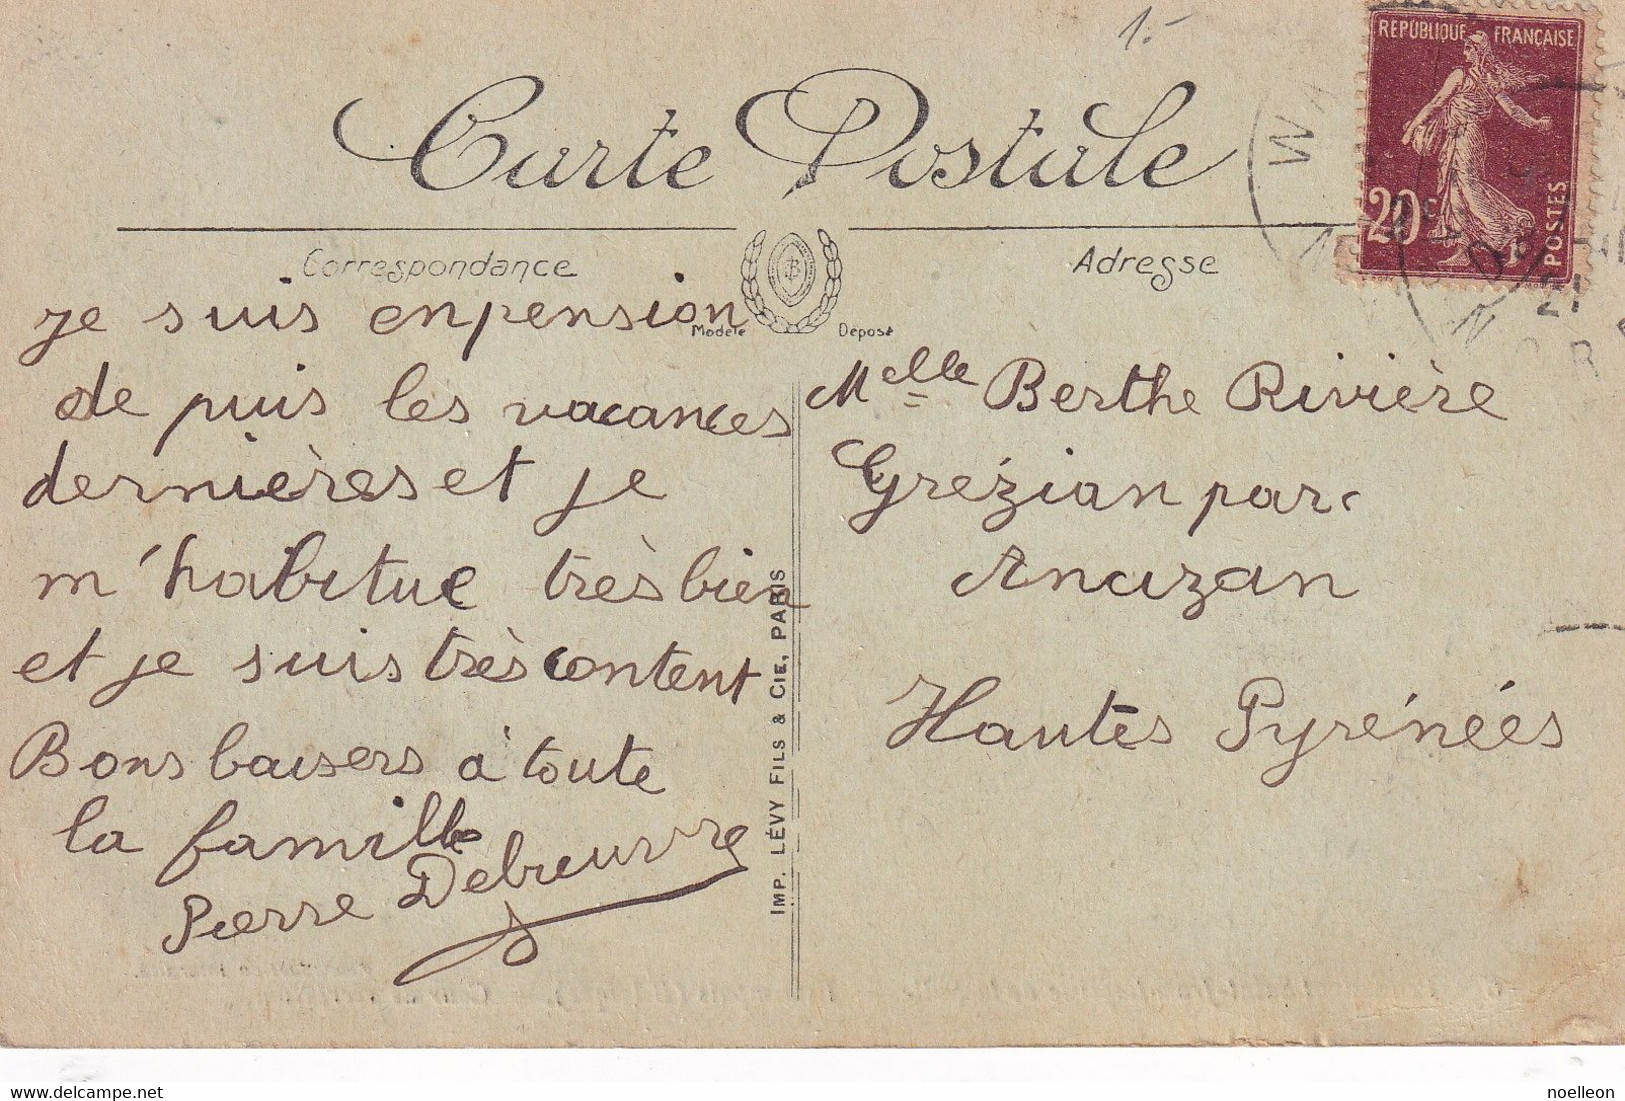 1.-
RÉPUBLIQUE FRANÇAISE
20
POSTES
Carte Postale
Correspondance
Adresse
Modèle Déposé
je suis en pension
de puis les vacances
dernières et je
m'habitue très bien
et je suis très content
Bons baisers à toute
la famille
Pierre
IMP. LÉVY FILS & CIE, PARIS
Melle Berthe Rivière
Grézian par
Ancizan
Hautes Pyrénées
delcampe.net
noelleon